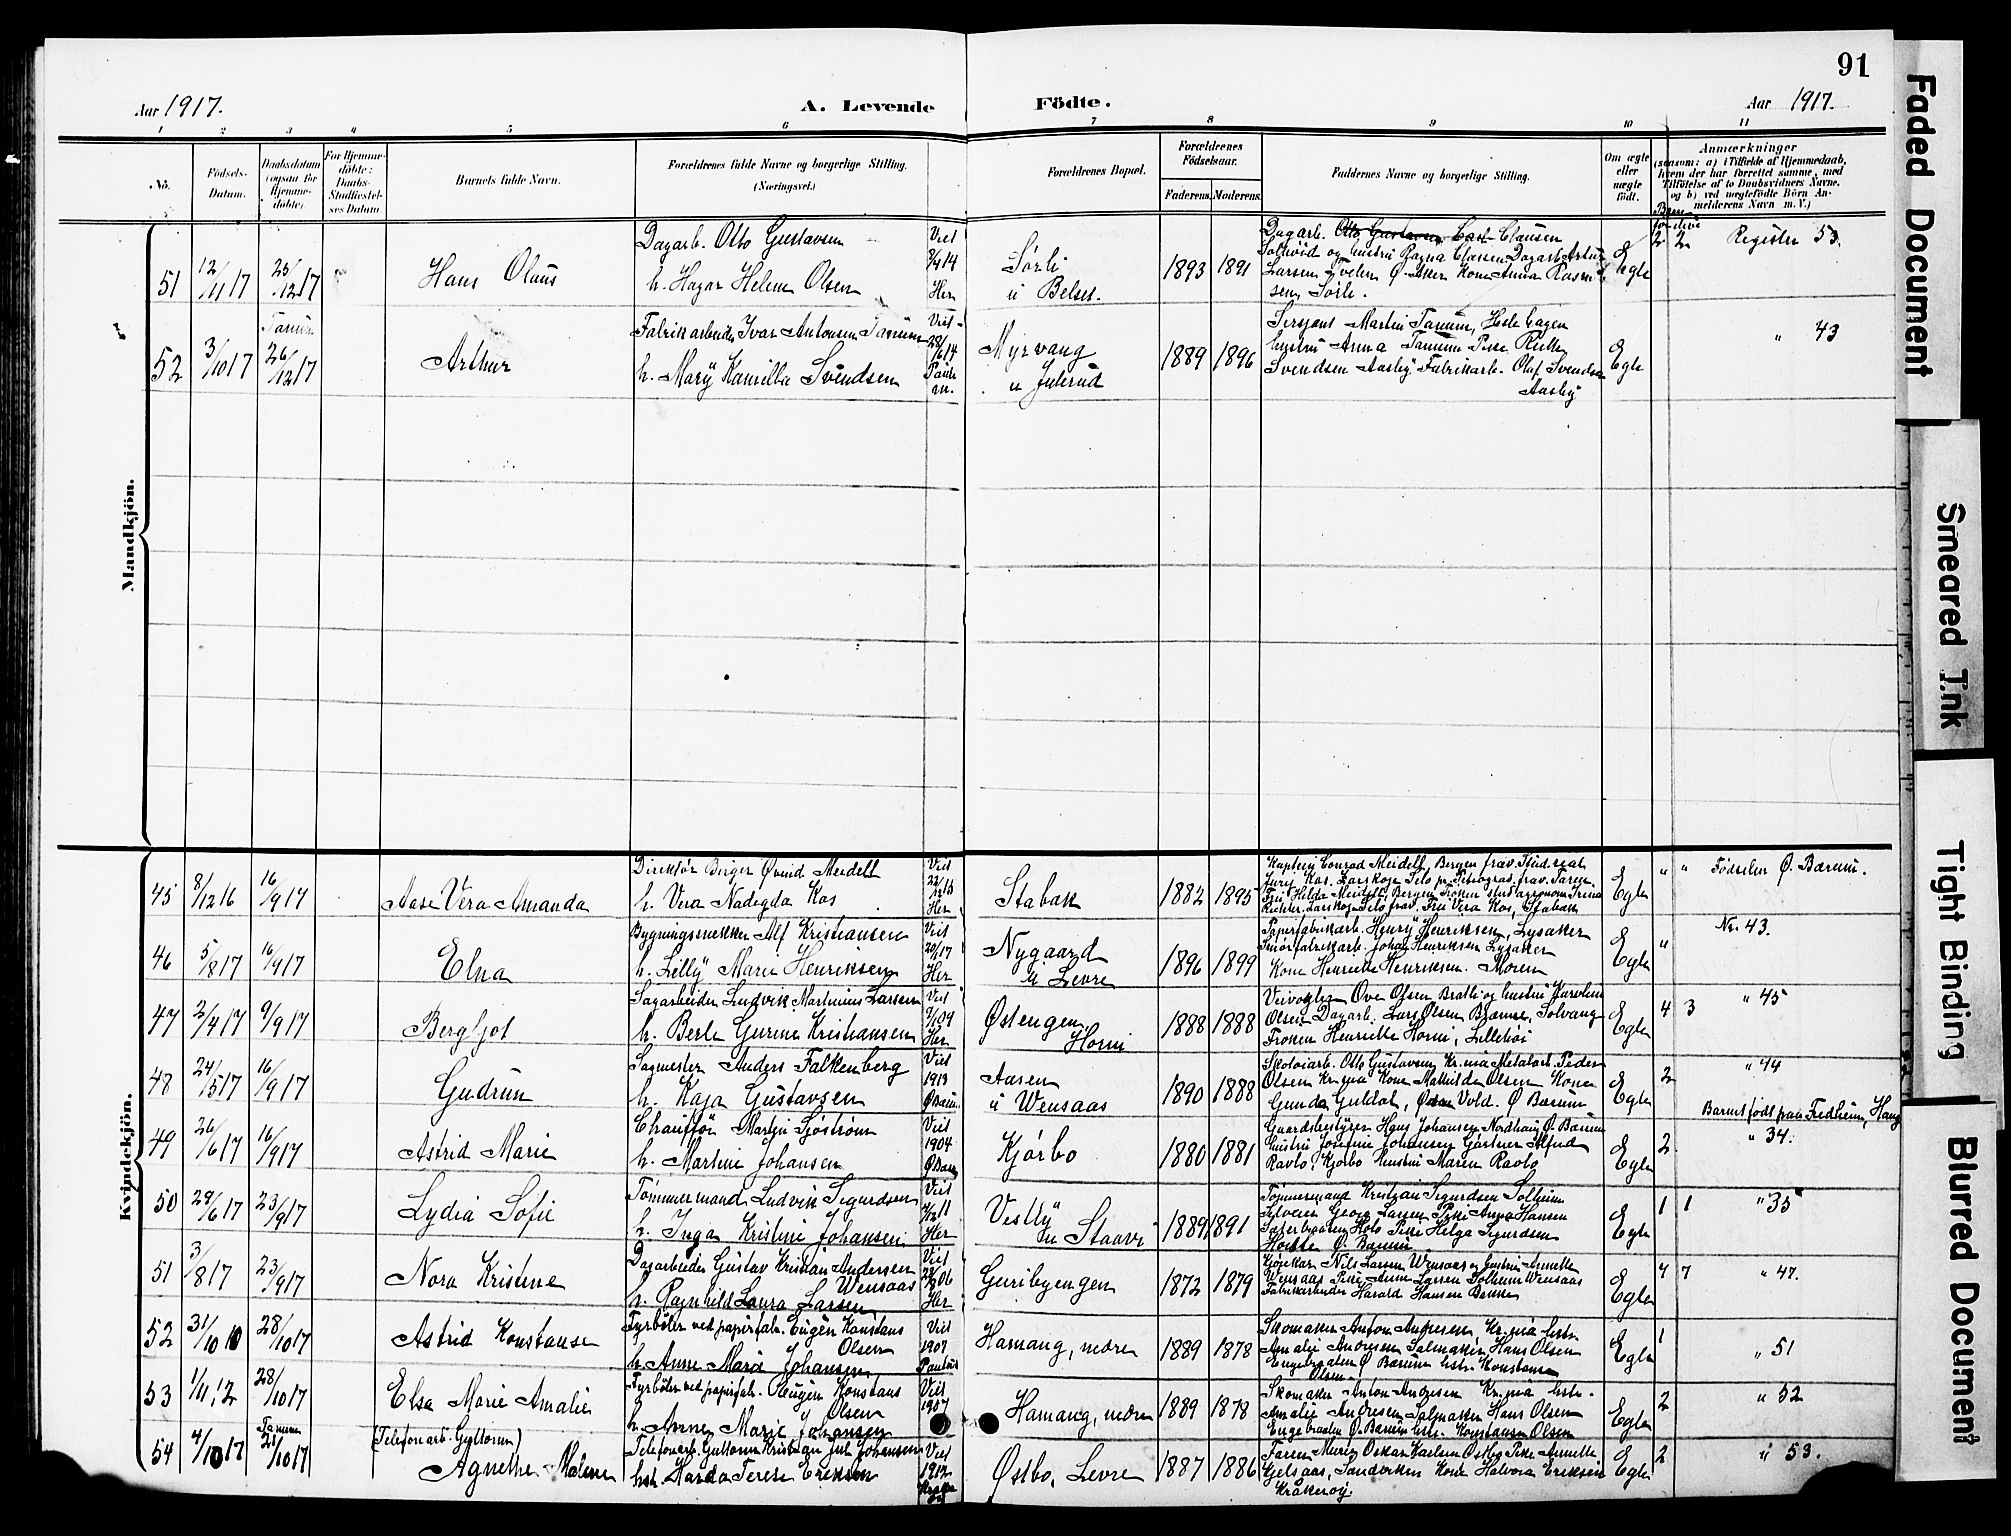 91
Aar 1917.
A. Levende
Födte.
Aar 1917.
1 2 3 4 5 6 7 8 9 10 11
No.
Födsels-
Datum.
Daabsdatum
(ogsaa for
Hjemme-
döbte).
For Hjemme-
döbte:
Daabs-
Stadfæstel-
ses Datum
Barnets fulde Navn.
Forældrenes fulde Navne og borgerlige Stilling.
(Næringsvei.)
Forældrenes Bopæl.
Forældrenes
Födselsaar.
Faderens. Moderens.
Faddernes Navne og borgerlige Stilling.
Om ægte
eller
uægte
födt.
Anmærkninger
(saasom: a) i Tilfælde af Hjemmedaab,
hvem der har forrettet samme, med
Tilföielse af to Daabsvidners Navne,
og b) ved uægtefödte Börn An-
melderens Navn m. V.)
Mandkjön.
51 12/11 17 25/12 17
Hans Olaus
Dagarb. Otto Gustavsen
h. Hagar Helene Olsen
Viet
14
Her
Sørli
u Belset.
1893 1891
Dagarb. Otto Gustavsen Carl Clausen
og hustru Ragna Clausen Dagarb Artur
Larsen Tveter Ø. Aker Kone Anna Rasmus-
sen, Sørli.
Egte
2 2 Register 53.
52 3/10 17 Tanum 26/12 17
Arthur
Fabrikarbeider Ivar Antonsen Tanum
h. Mary Kamilla Svendsen
Viet
28/6 14
Myrvang
u Juterud
1889 1896
Sersjant Martin Tanum, Hasle hagen
hustru Anna Tanum Pike Ruth
Svendsen Aasby Fabrikarb. Olaf Svendsen
Aasby
Egte
" 43
Kvindekjön.
45 8/12 16 16/9 17
Aase Vera Amanda
Direktør Birger Øvind Meidell
h. Vera Nadegda Kos
Viet
Her
Stabæk
1882 1895
Kaptein Conrad Meidell, Bergen frav. Stud. real
Jury Kos. Zarskoje Selo pr. Petrograd frav.
Fru Helde Meidell Bergen Frøken stud agronom Irina
Richter. Zarskoje Selo frav. Fru Vera Kos, Stabæk
Egte
" " Fødselen Ø. Bærum.
46 5/8 17 16/9 17
Elna
Bygningssnekker Alf Kristiansen
h. Lilly Marie Henriksen
Viet
20/ 17
Her
Nygaard
u Levre
1896 1899
Papirfabrikarb. Henry Henriksen, Lysaker
Smørfabrikarb. Johan Henriksen Lysaker
Kone Henriette Henriksen. Moren
Egte
" Nr. 43.
47 2/4 17 9/9 17
Bergljot
Sagarbeider Ludvik Martinius Larsen
h. Berte Gurine Kristiansen
Viet
9/ 09
Her
Østengen,
Horni
1888 1888
Veivogter Ove Olsen Bratli og hustru Karoline
Olsen Dagarb. Lars Olsen Bjerke, Solvang
Frøken Henriette Horni, Lillehöi
Egte
4 3 " 45
48 24/5 17 16/9 17
Gudrun
Sagmester Anders Falkenberg
h. Kaja Gustavsen
Viet
1913
Ø Bærum
Aasen
u Wensaas
1890 1888
Otto Gustavsen Kr.nia Metalarb. Peder
Olsen Kr.nia Kone Mathilde Olsen Kone
Gunda Guldal, Vold. Ø. Bærum
Egte
2 " 44
49 26/6 17 16/9 17
Astrid Marie
Chauffør Martin Sjöström
h. Martine Johansen
Viet
1904
Ø Bærum
Kjørbo
1880 1881
Gaardsbestyrer Hans Johansen Nordhaug Ø. Bærum
hustru Josefine Johansen Gartner Alfred
Ravlo, Kjørbo Hustru Maren Ravlo
Egte
Barnet født paa Fredheim, Haug
2 " 34.
50 29/6 17 23/9 17
Lydia Sofie
Tømmermand Ludvik Sigurdsen
h. Inga Kristine Johansen
Viet
11
Her
Vestby
u Staavi
1889 1891
Tømmermand Kristian Sigurdsen Solheim
Georg Larsen Pike Anna Hansen
Pike Helga Sigurdsen
Ø. Bærum
Egte
1 1 " 35
51 3/8 17 23/9 17
Nora Kristine
Dagarbeider Gustav Kristian Andersen
Wensaas
h. Ragnhild Laura Larsen
Viet
1906
Her
Guribyengen
1872 1879
Nils Larsen Wensaas og hustru Annette
Wensaas Pike Anna Larsen Solheim Wensaas
Fabrikarbeider Harald Hansen
Egte
4 7 " 47.
52 31/10 10 28/10 17
Astrid Konstanse
Fyrbøter ved papirfab. Eugen Konstans
Olsen
h. Anne Marie Johansen
Viet
1907
Hamang, nedre
1889 1878
Skomaker Anton Andresen Kr.nia hstr.
Amalie Andresen Salmaker Hans Olsen
Engebraaten Ø. Bærum hstr. Konstanse
Olsen
Egte
1 " 51
53 1/11 12 28/10 17
Elsa Marie Amalie
Fyrbøter ved papirfab. Eugen Konstans
Olsen
h. Anne Marie Johansen
Viet
1907
Hamang, nedre
1889 1878
Skomaker Anton Andresen Kr.nia hstr.
Amalie Andresen Salmaker Hans Olsen
Engebraaten Ø. Bærum hstr. Konstanse Olsen
Egte
2 " 52
54 4/10 17 Tanum 21/10 17
(Telefonarb. Guttorm)
Agnethe Malene
Telefonarb. Guttorm Kristian Jul. Johansen
hst. Harda Terese Eriksen
Viet
1912
Kraker
øy
Østbo, Levre
1887 1886
Faren Murer Oskar Karlsen Østbo Pike Annette
Gjelsaas, Sandviken Kone Halvora Eriksen
Krakerøy.
Egte
2 " 53.
Faded Document
Smeared Ink
Tight Binding
Blurred Document